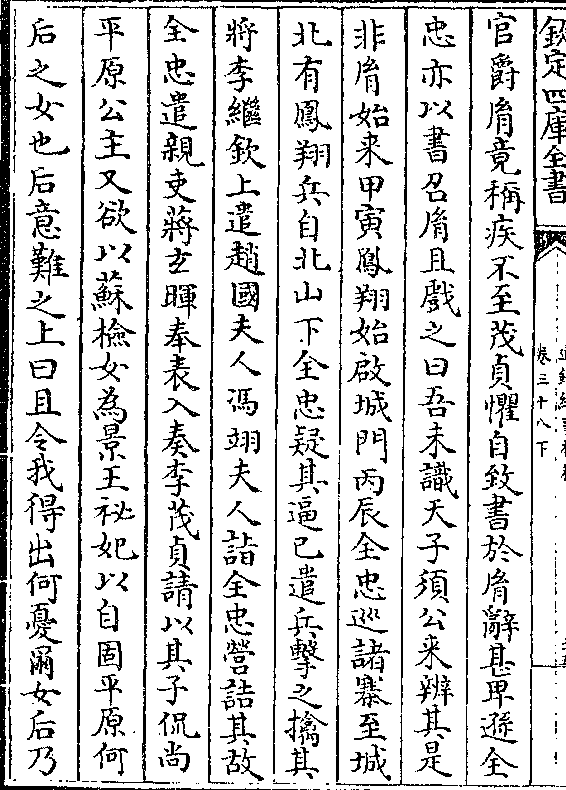 欽定四庫全書
卷三十八下
官爵胤竟稱疾不至茂貞懼自致書於胤辭甚卑遜全
忠亦以書召胤且戲之曰吾未識天子須公来辨其是
非胤始来甲寅鳳翔始啟城門丙辰全忠巡諸寨至城
北有鳳翔兵自北山下全忠疑其逼己遣兵擊之擒其
將李繼欽上遣趙國夫人馮翊夫人詣全忠營詰其故
全忠遣親吏蔣玄暉奉表入奏李茂貞請以其子侃尚
平原公主又欲以蘇檢女為景王祕妃以自固平原何
后之女也后意難之上曰且令我得出何憂爾女后乃